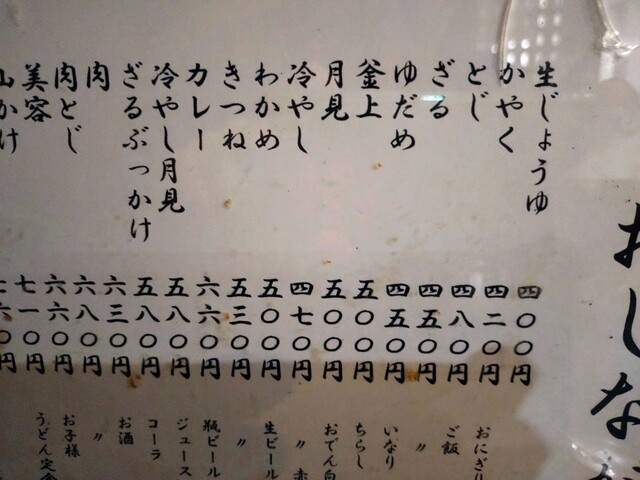 おしな
生じょうゆ 四〇〇円
かやく 四二〇円
とじ 四八〇円
ざる 四五〇円
ゆだめ 四五〇円
釜上 五〇〇円
月見 五〇〇円
冷やし 四七〇円
わかめ 五〇〇円
きつね 五三〇円
カレー 六六〇円
冷やし月見 五八〇円
ざるぶっかけ 五八〇円
肉 六三〇円
肉とじ 六八〇円
美容 六六〇円
山かけ 七一〇円
七六〇円
おにぎり
ご飯
〃
いなり
ちらし
おでん白
〃 赤
生ビール
〃
瓶ビール
ジュース
コーラ
お酒
〃
お子様
うどん定